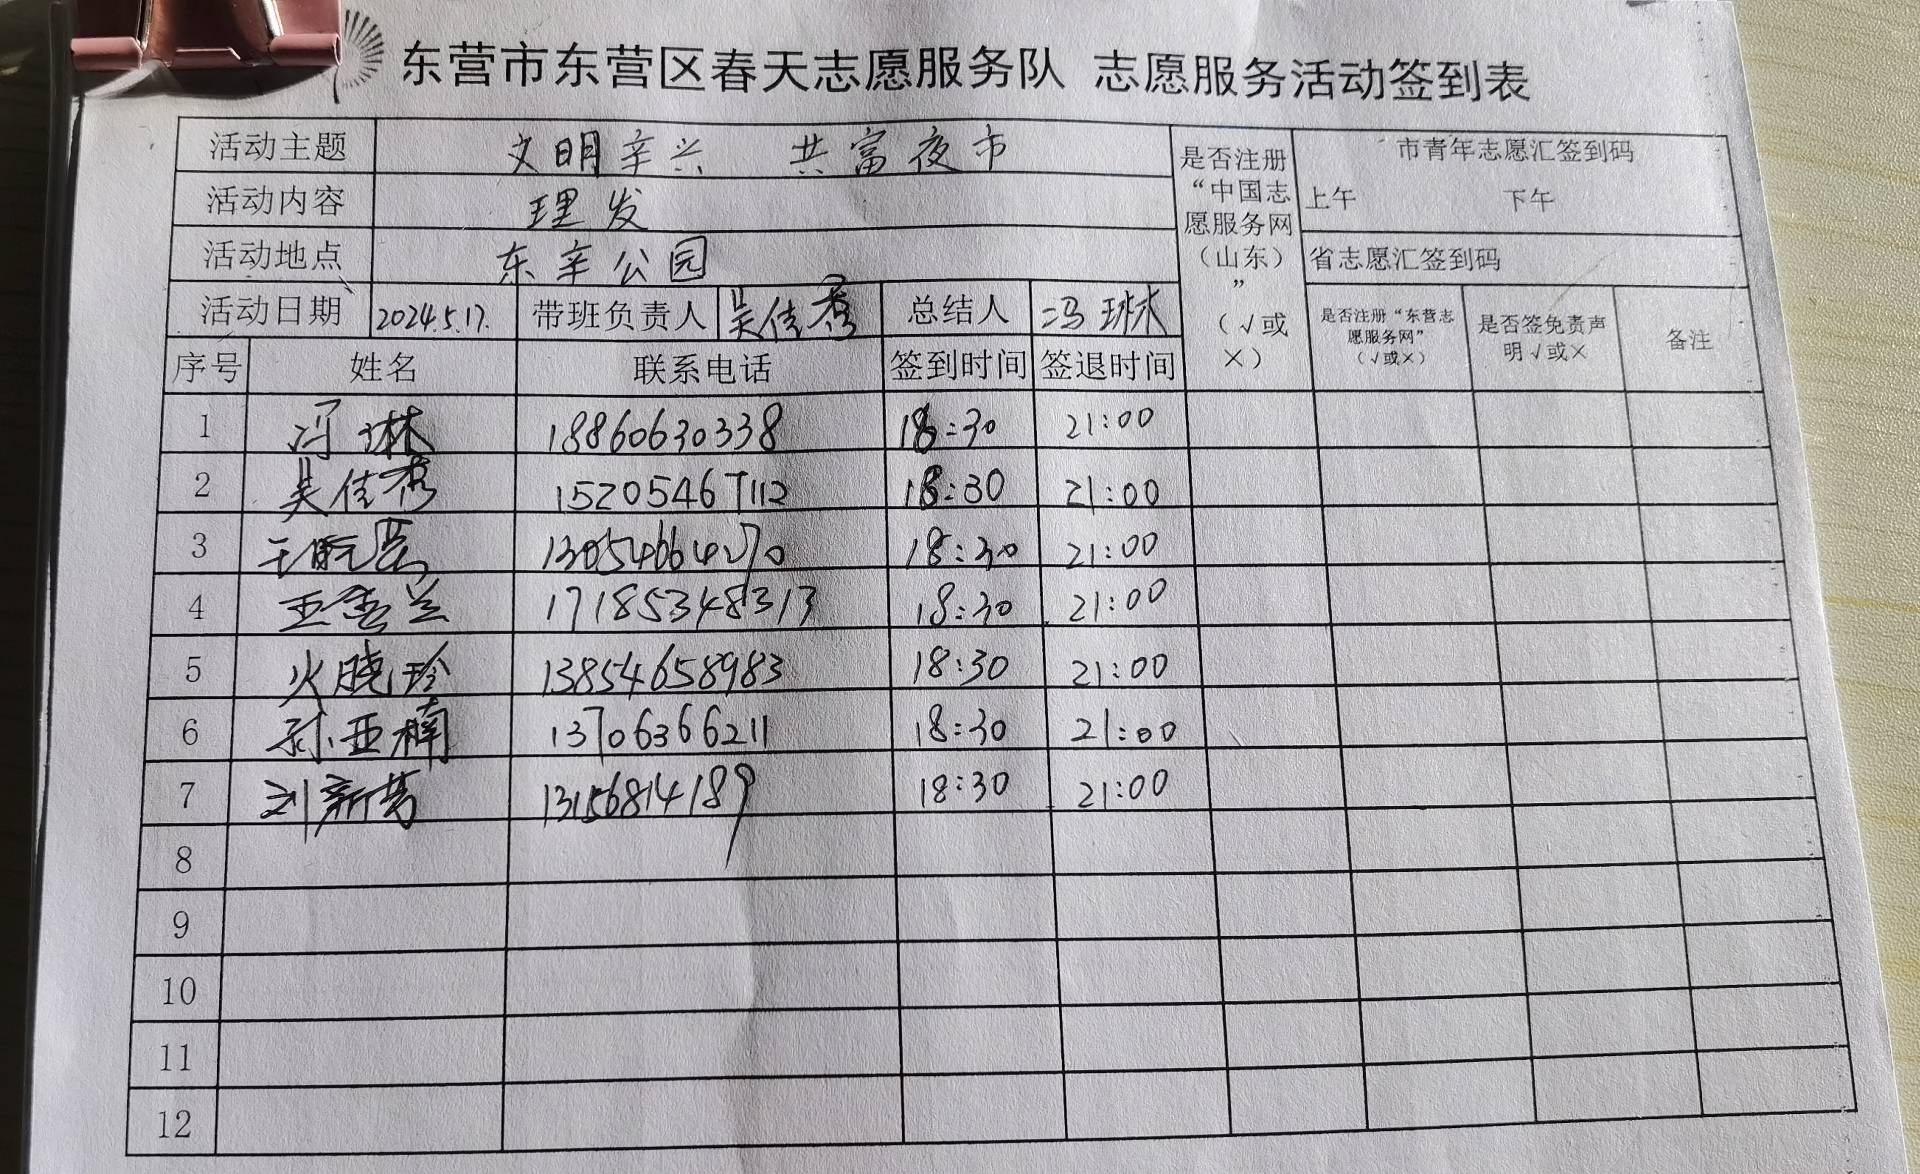 东营市东营区春天志愿服务队 志愿服务活动签到表
活动主题 文明辛兴 共富夜市
活动内容 理发
活动地点 东辛公园
活动日期 2024.5.17. 带班负责人 吴佳秀 总结人 冯琳
是否注册
“中国志
愿服务网
（山东）
”
（√或
×）
市青年志愿汇签到码
上午 下午
省志愿汇签到码
是否注册“东营志
愿服务网”
（√或×）
是否签免责声
明√或×
备注
序号 姓名 联系电话 签到时间 签退时间
1 冯琳 18860630338 18:30 21:00
2 吴佳秀 15205467112 18:30 21:00
3 18:30 21:00
4 17185348313 18:30 21:00
5 火晓玲 13854658983 18:30 21:00
6 孙亚楠 13706366211 18:30 21:00
7 刘新芳 13156814189 18:30 21:00
8
9
10
11
12